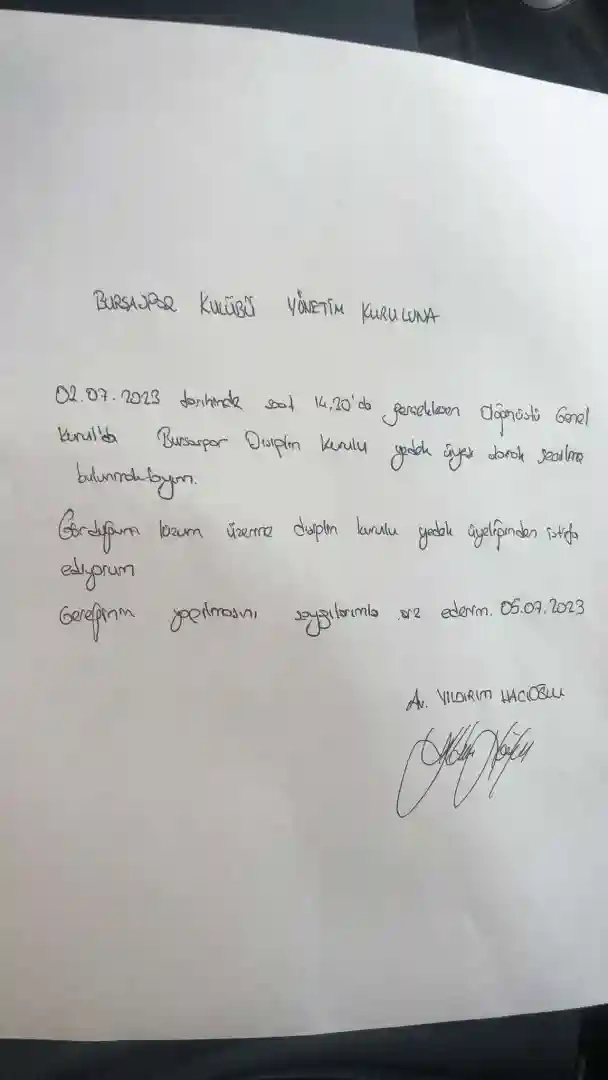 BURSASPOR KULÜBÜ YÖNETİM KURULUNA
02.07.2023 tarihinde saat 14,20'da gerçekleşen Olağanüstü Genel
Kurul'da Bursaspor Disiplin Kurulu yedek üyesi olarak seçilmiş
bulunmaktayım.
Gördüğüm lüzum üzerine disiplin kurulu yedek üyeliğinden istifa
ediyorum
Gereğinin yapılmasını saygılarımla arz ederim. 05.07.2023
Av. YILDIRIM HACIOĞLU